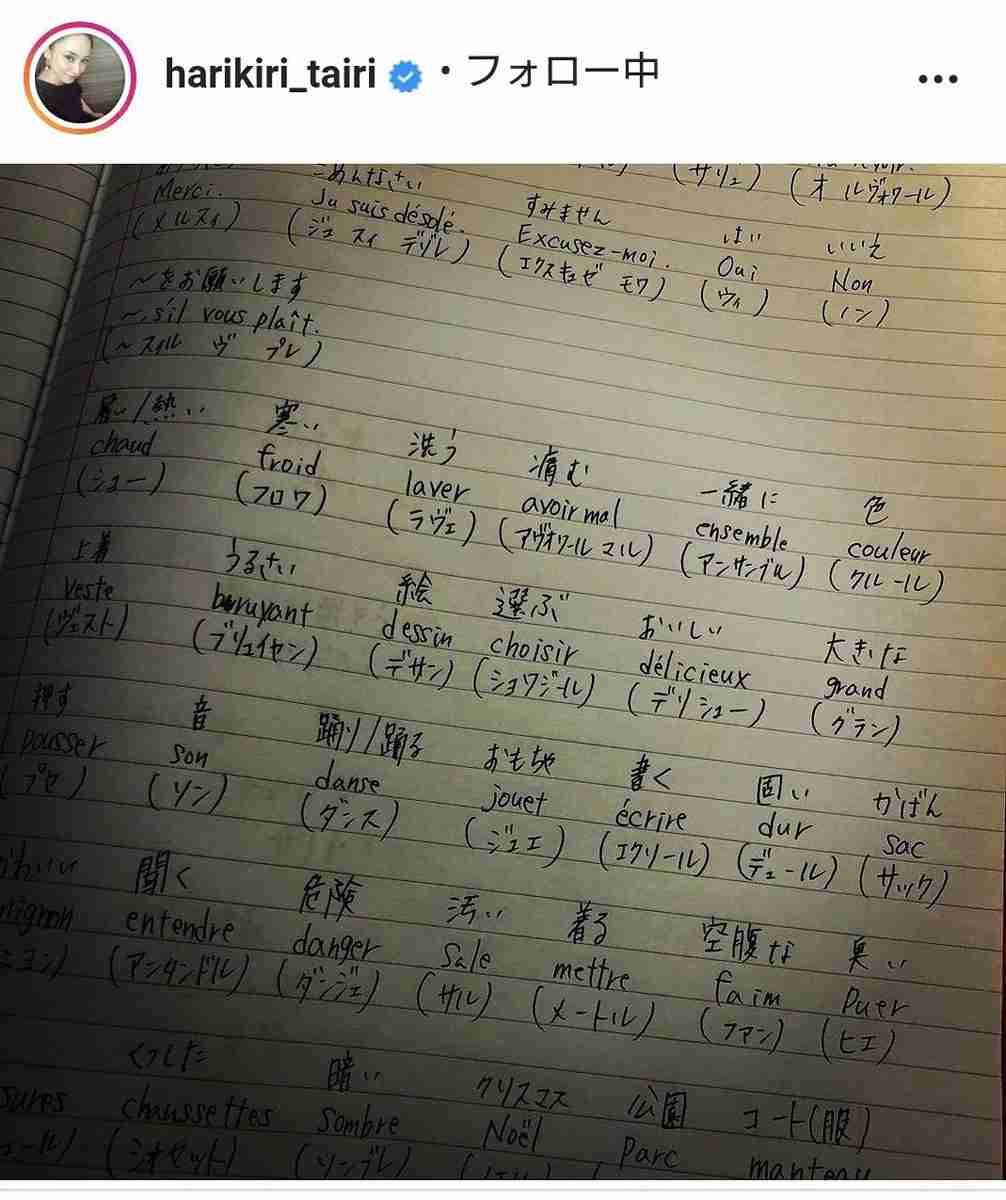 harikiri_tairi ・フォロー中
ごめんなさい (サリュ) (オ ルヴォワール)
Merci. Ju suis désolé. すみません はい いいえ
(メルスィ) (ジュ スィ デゾレ) Excusez-moi. Oui Non
(エクスキュゼ モワ) (ウィ) (ノン)
〜をお願いします
〜, s'il vous plaît.
(〜スィル ヴ プレ)
暑い/熱い 寒い 洗う 痛む 一緒に 色
chaud froid laver avoir mal ensemble couleur
(ショー) (フロワ) (ラヴェ) (アヴォワール マル) (アンサンブル) (クルール)
上着 うるさい 絵 選ぶ おいしい 大きな
veste bruyant dessin choisir délicieux grand
(ヴェスト) (ブリュイヤン) (デサン) (ショワジール) (デリシュー) (グラン)
押す 音 踊り/踊る おもちゃ 書く 固い かばん
pousser son danse jouet écrire dur sac
(プセ) (ソン) (ダンス) (ジュエ) (エクリール) (デュール) (サック)
かわいい 聞く 危険 汚い 着る 空腹な 臭い
mignon entendre danger Sale mettre faim Puer
ニヨン) (アンタンドル) (ダンジェ) (サル) (メートル) (ファン) (ピエ)
くつした 暗い クリスマス 公園 コート(服)
sures chaussettes Sombre Noël Parc manteau
ュール) (ショセット) (ソンブレ)